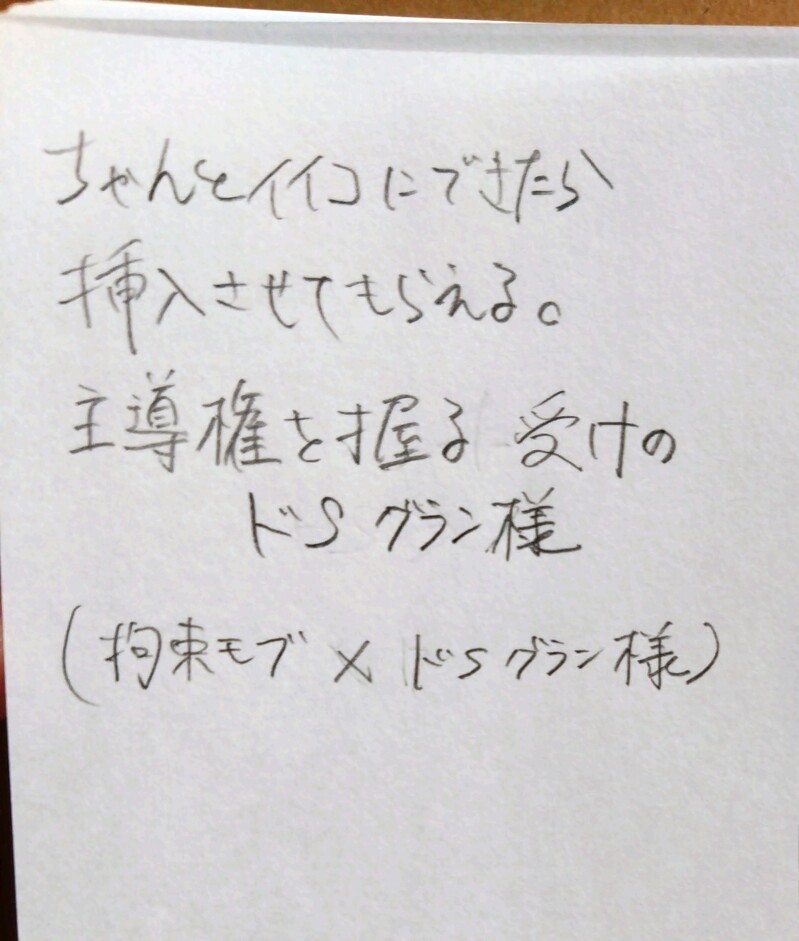 ちゃんとイイコにできたら
挿入させてもらえる。
主導権を握る 受けの
ドS グラン様
(拘束モブ × ドSグラン様)